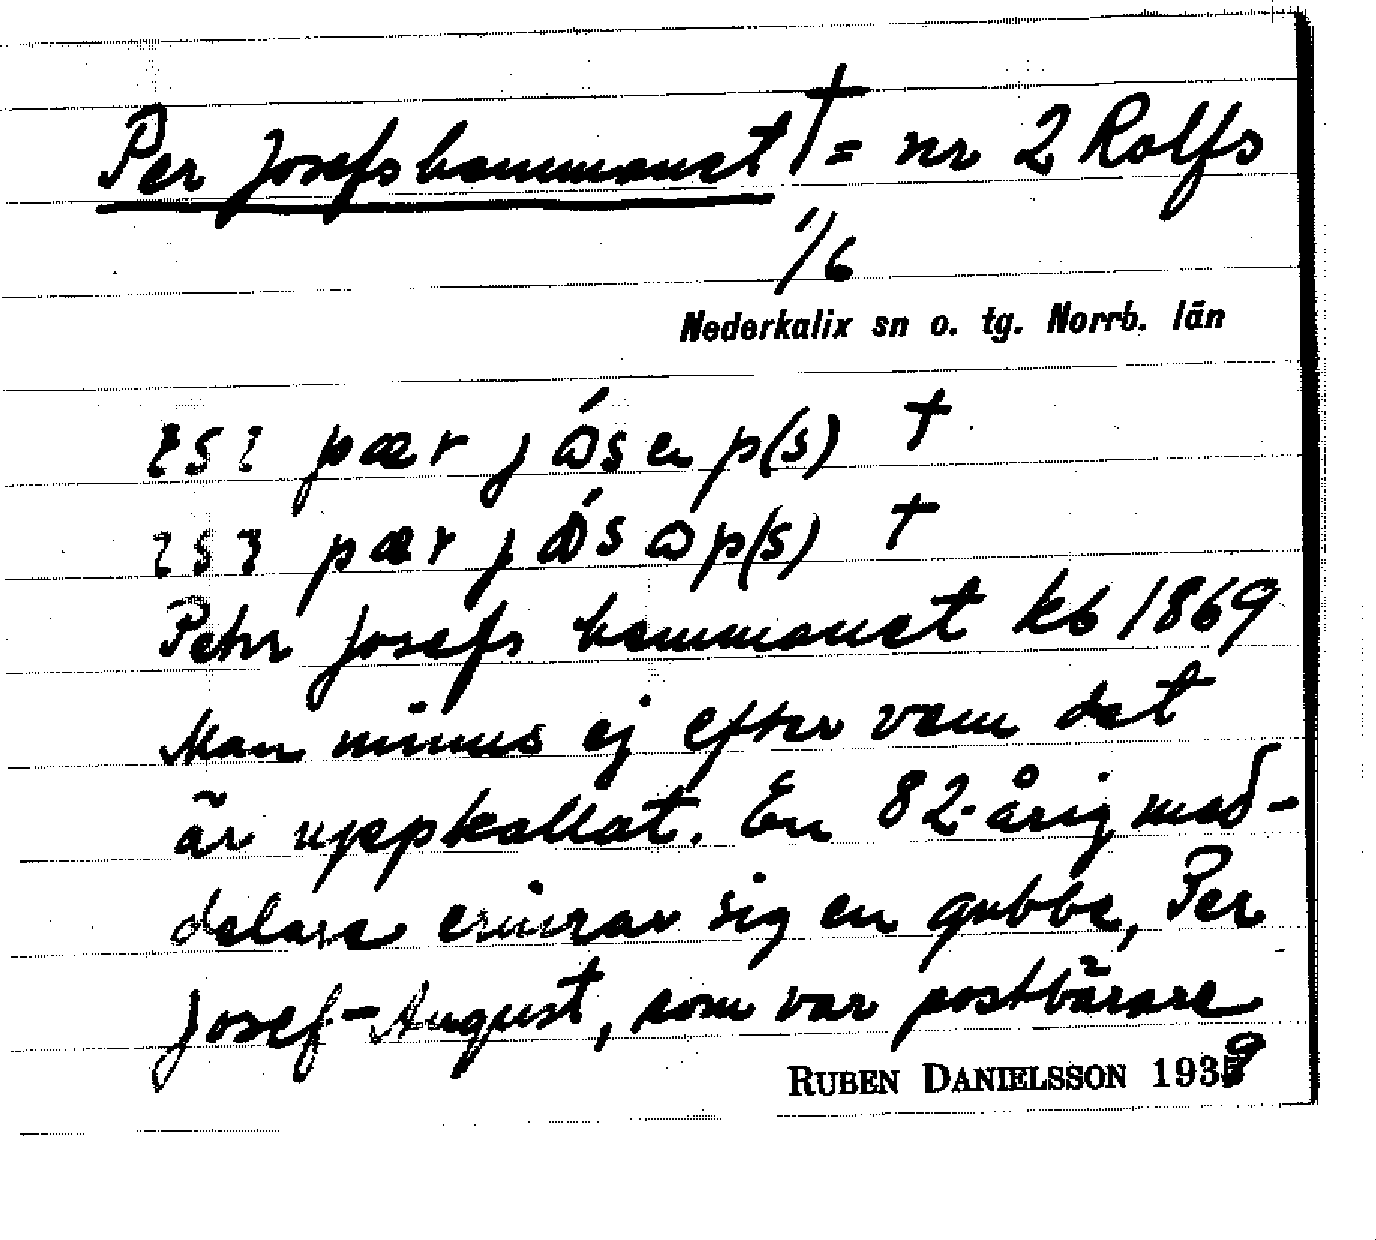 Per Josefshemmanet † = nr 2 Rolfs
1/6
Nederkalix sn o. tg. Norrb. län
pær jɷ́sep(s) †
pær jɷ́sɷp(s) †
Pehr Josefs hemmanet kb 1869
Man minns ej efter vem det
är uppkallat. En 82-årig med-
delare erinrar sig en gubbe, Per
Josef-August, som var postbärare
RUBEN DANIELSSON 1939